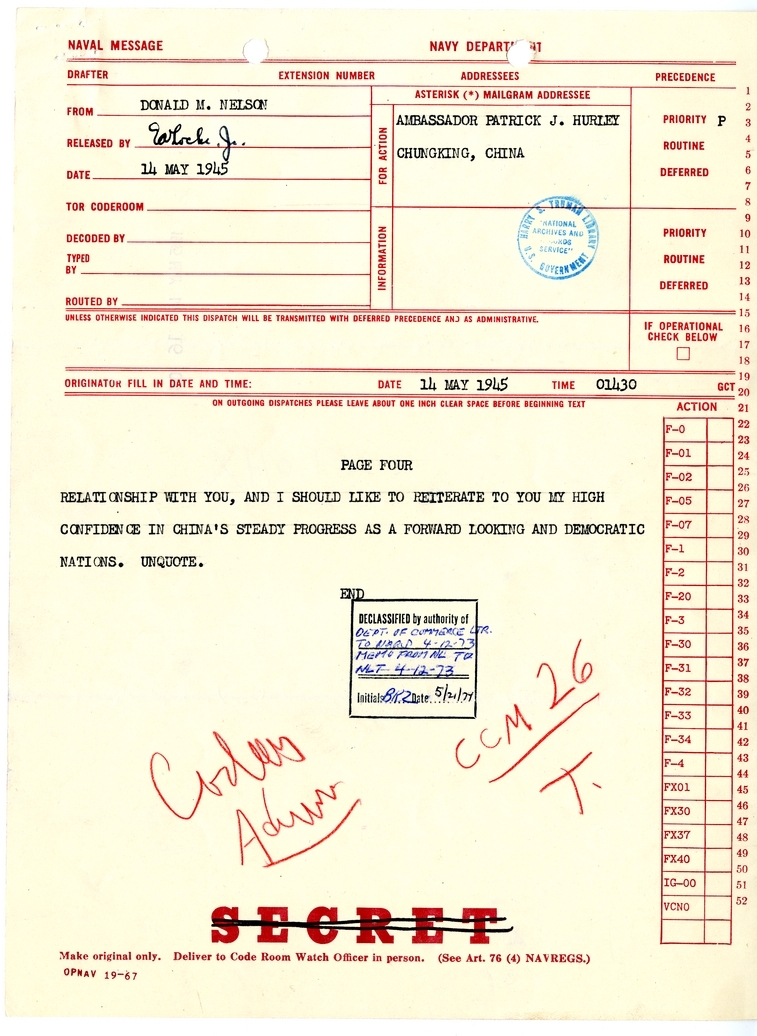 NAVAL MESSAGE NAVY DEPARTMENT
DRAFTER EXTENSION NUMBER ADDRESSEES PRECEDENCE
ASTERISK (*) MAILGRAM ADDRESSEE
FROM DONALD M. NELSON
RELEASED BY
DATE 14 MAY 1945
TOR CODEROOM
DECODED BY
TYPED
BY
ROUTED BY
FOR ACTION
AMBASSADOR PATRICK J. HURLEY
CHUNGKING, CHINA
INFORMATION
HARRY S. TRUMAN LIBRARY
"NATIONAL
ARCHIVES AND
SERVICE"
U.S. GOVERNMENT
PRIORITY P
ROUTINE
DEFERRED
PRIORITY
ROUTINE
DEFERRED
UNLESS OTHERWISE INDICATED THIS DISPATCH WILL BE TRANSMITTED WITH DEFERRED PRECEDENCE AND AS ADMINISTRATIVE.
IF OPERATIONAL
CHECK BELOW
ORIGINATOR FILL IN DATE AND TIME: DATE 14 MAY 1945 TIME 01430 GCT
ON OUTGOING DISPATCHES PLEASE LEAVE ABOUT ONE INCH CLEAR SPACE BEFORE BEGINNING TEXT
PAGE FOUR
RELATIONSHIP WITH YOU, AND I SHOULD LIKE TO REITERATE TO YOU MY HIGH
CONFIDENCE IN CHINA'S STEADY PROGRESS AS A FORWARD LOOKING AND DEMOCRATIC
NATIONS. UNQUOTE.
END
DECLASSIFIED by authority of
DEPT. OF COMMERCE LTR.
TO NARD 4-12-73
MEMO FROM NL TO
NLT 4-12-73
Initials BKZ Date 5/21/74
CCM 26
T.
Admin
SECRET
Make original only. Deliver to Code Room Watch Officer in person. (See Art. 76 (4) NAVREGS.)
OPNAV 19-67
ACTION
F-0
F-01
F-02
F-05
F-07
F-1
F-2
F-20
F-3
F-30
F-31
F-32
F-33
F-34
F-4
FX01
FX30
FX37
FX40
IG-00
VCNO
1
2
3
4
5
6
7
8
9
10
11
12
13
14
15
16
17
18
19
20
21
22
23
24
25
26
27
28
29
30
31
32
33
34
35
36
37
38
39
40
41
42
43
44
45
46
47
48
49
50
51
52